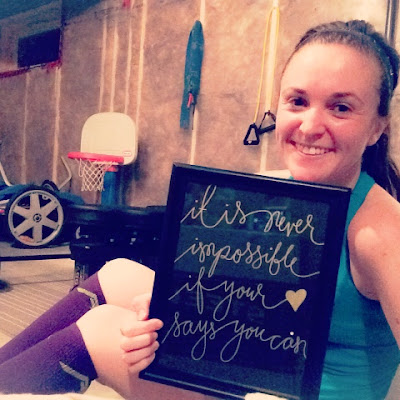 it is never
impossible
if your ♥
says you can